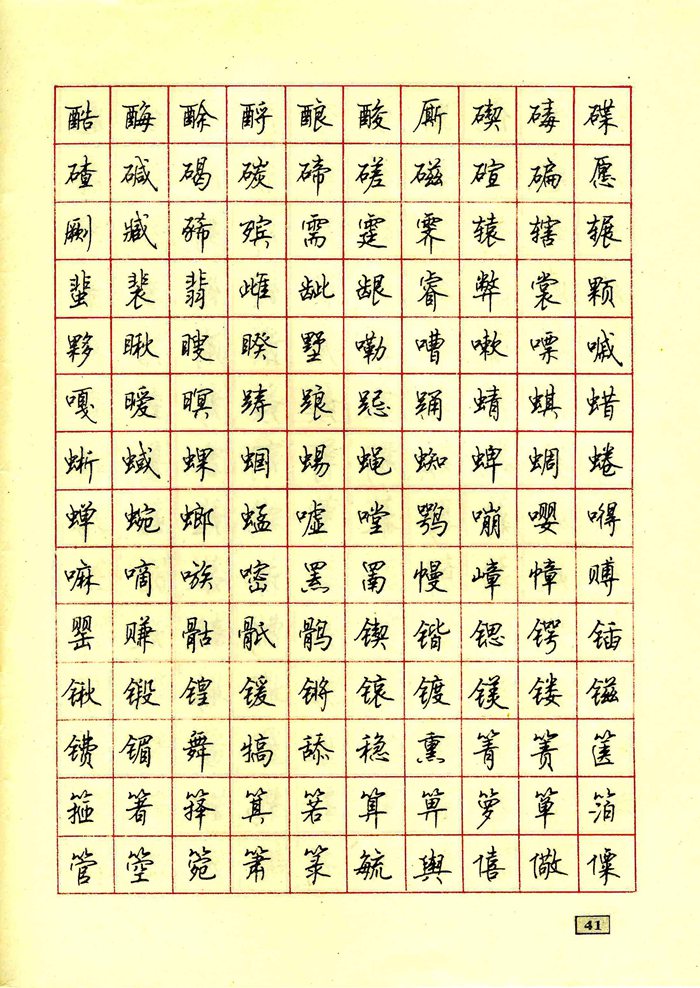 酷酶酴酹酿酸厮碶碡碟
碴碱碣碳碲磋磁碹碥愿
劂臧豨殡需霆霁辕辖辗
蜚裴翡雌龇龈睿弊裳颗
夥瞅瞍睽墅嘞嘈嗽嘌嘁
嘎暧暝踌踉跽踊蜻蜞蜡
蜥蜮蜾蝈蜴蝇蜘蜱蜩蜷
蝉蜿螂蜢嘘嘡鹗嘣嘤嘚
嘛嘀嗾嘧罴罱幔嶂幛赙
罂赚骷骶鹘锲锴锶锷锸
锹锻锽锾锵镀镁镂镃
镄镅舞犒舔稳熏箐箦箧
箍箸箨箕箬算箅箩箪箔
管箜箢箫箓毓舆僖儆僳
41